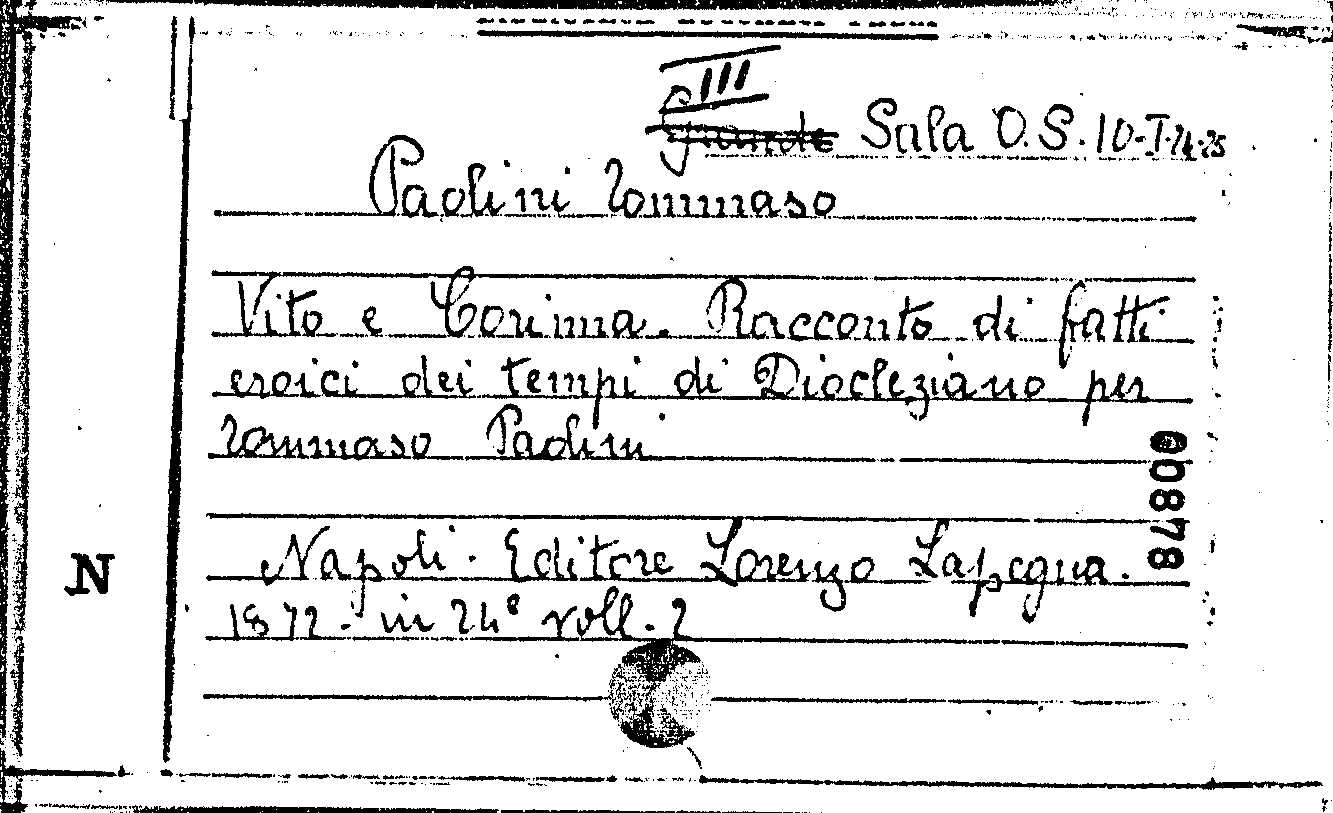 III
Grande Sala O.S. 10-I-24-25
Paolini Tommaso
Vito e Corima. Racconto di fatti
eroici dei tempi di Diocleziano per
Tommaso Paolini
Napoli. Editore Lorenzo Lapegna.
1872 - in 24° voll. 2
00878
N